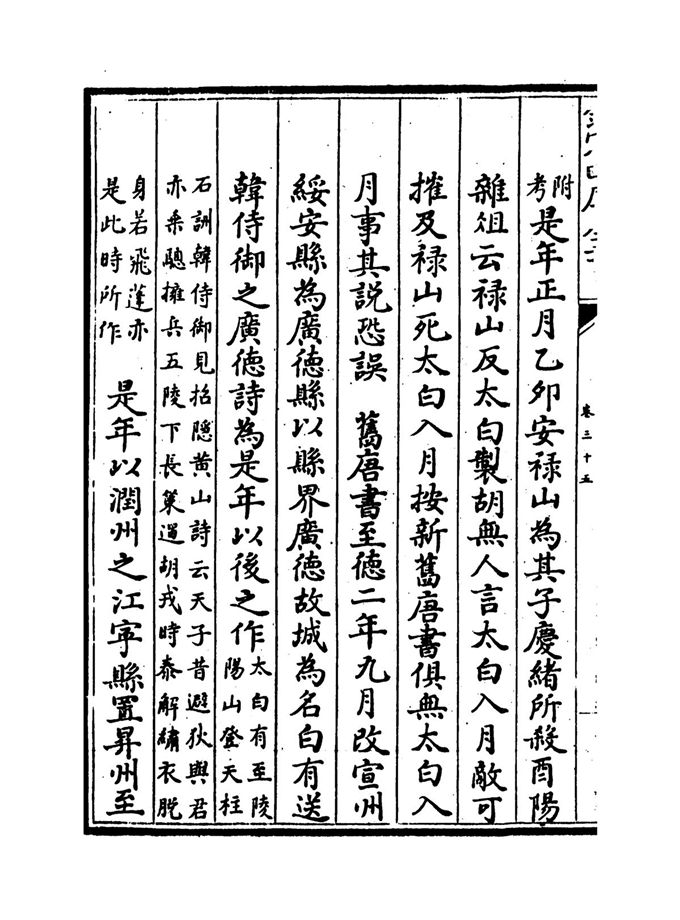 卷三十五
附考是年正月乙卯安禄山為其子慶緒所殺酉陽
雜俎云禄山反太白製胡無人言太白入月敵可
摧及禄山死太白入月按新舊唐書俱無太白入
月事其説恐誤　舊唐書至徳二年九月改宣州
綏安縣為廣徳縣以縣界廣徳故城為名白有送
韓侍御之廣徳詩為是年以後之作太白有至陵
陽山登天柱
石詶韓侍御見招隠黄山詩云天子昔避狄與君
亦乘驄擁兵五陵下長策遏胡戎時泰解繡衣脱
身若飛蓬亦
是此時所作　是年以潤州之江寜縣置昇州至